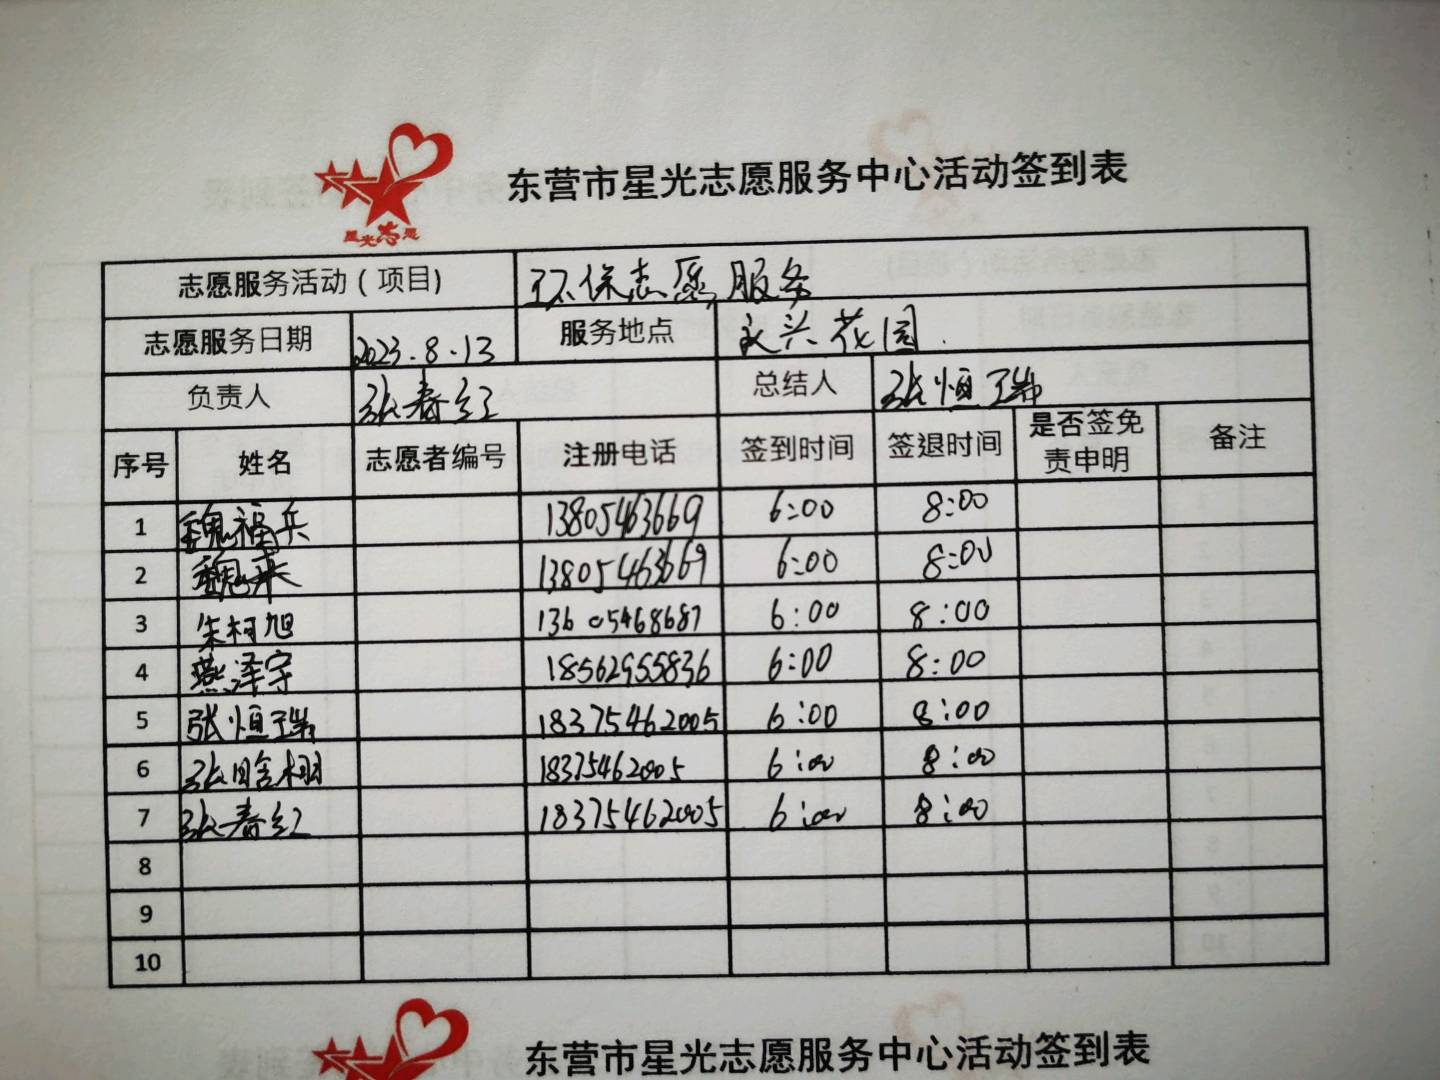 东营市星光志愿服务中心活动签到表
星光志愿
志愿服务活动（项目） 环保志愿服务
志愿服务日期 2023.8.13 服务地点 永兴花园
负责人 张春红 总结人 张恒瑞
序号 姓名 志愿者编号 注册电话 签到时间 签退时间 是否签免责申明 备注
1 魏福兵 13805463669 6:00 8:00
2 13805463669 6:00 8:00
3 朱柯旭 13605468687 6:00 8:00
4 燕泽宇 18562955836 6:00 8:00
5 张恒瑞 18375462005 6:00 8:00
6 张晗栩 18375462005 6:00 8:00
7 张春红 18375462005 6:00 8:00
8
9
10
东营市星光志愿服务中心活动签到表